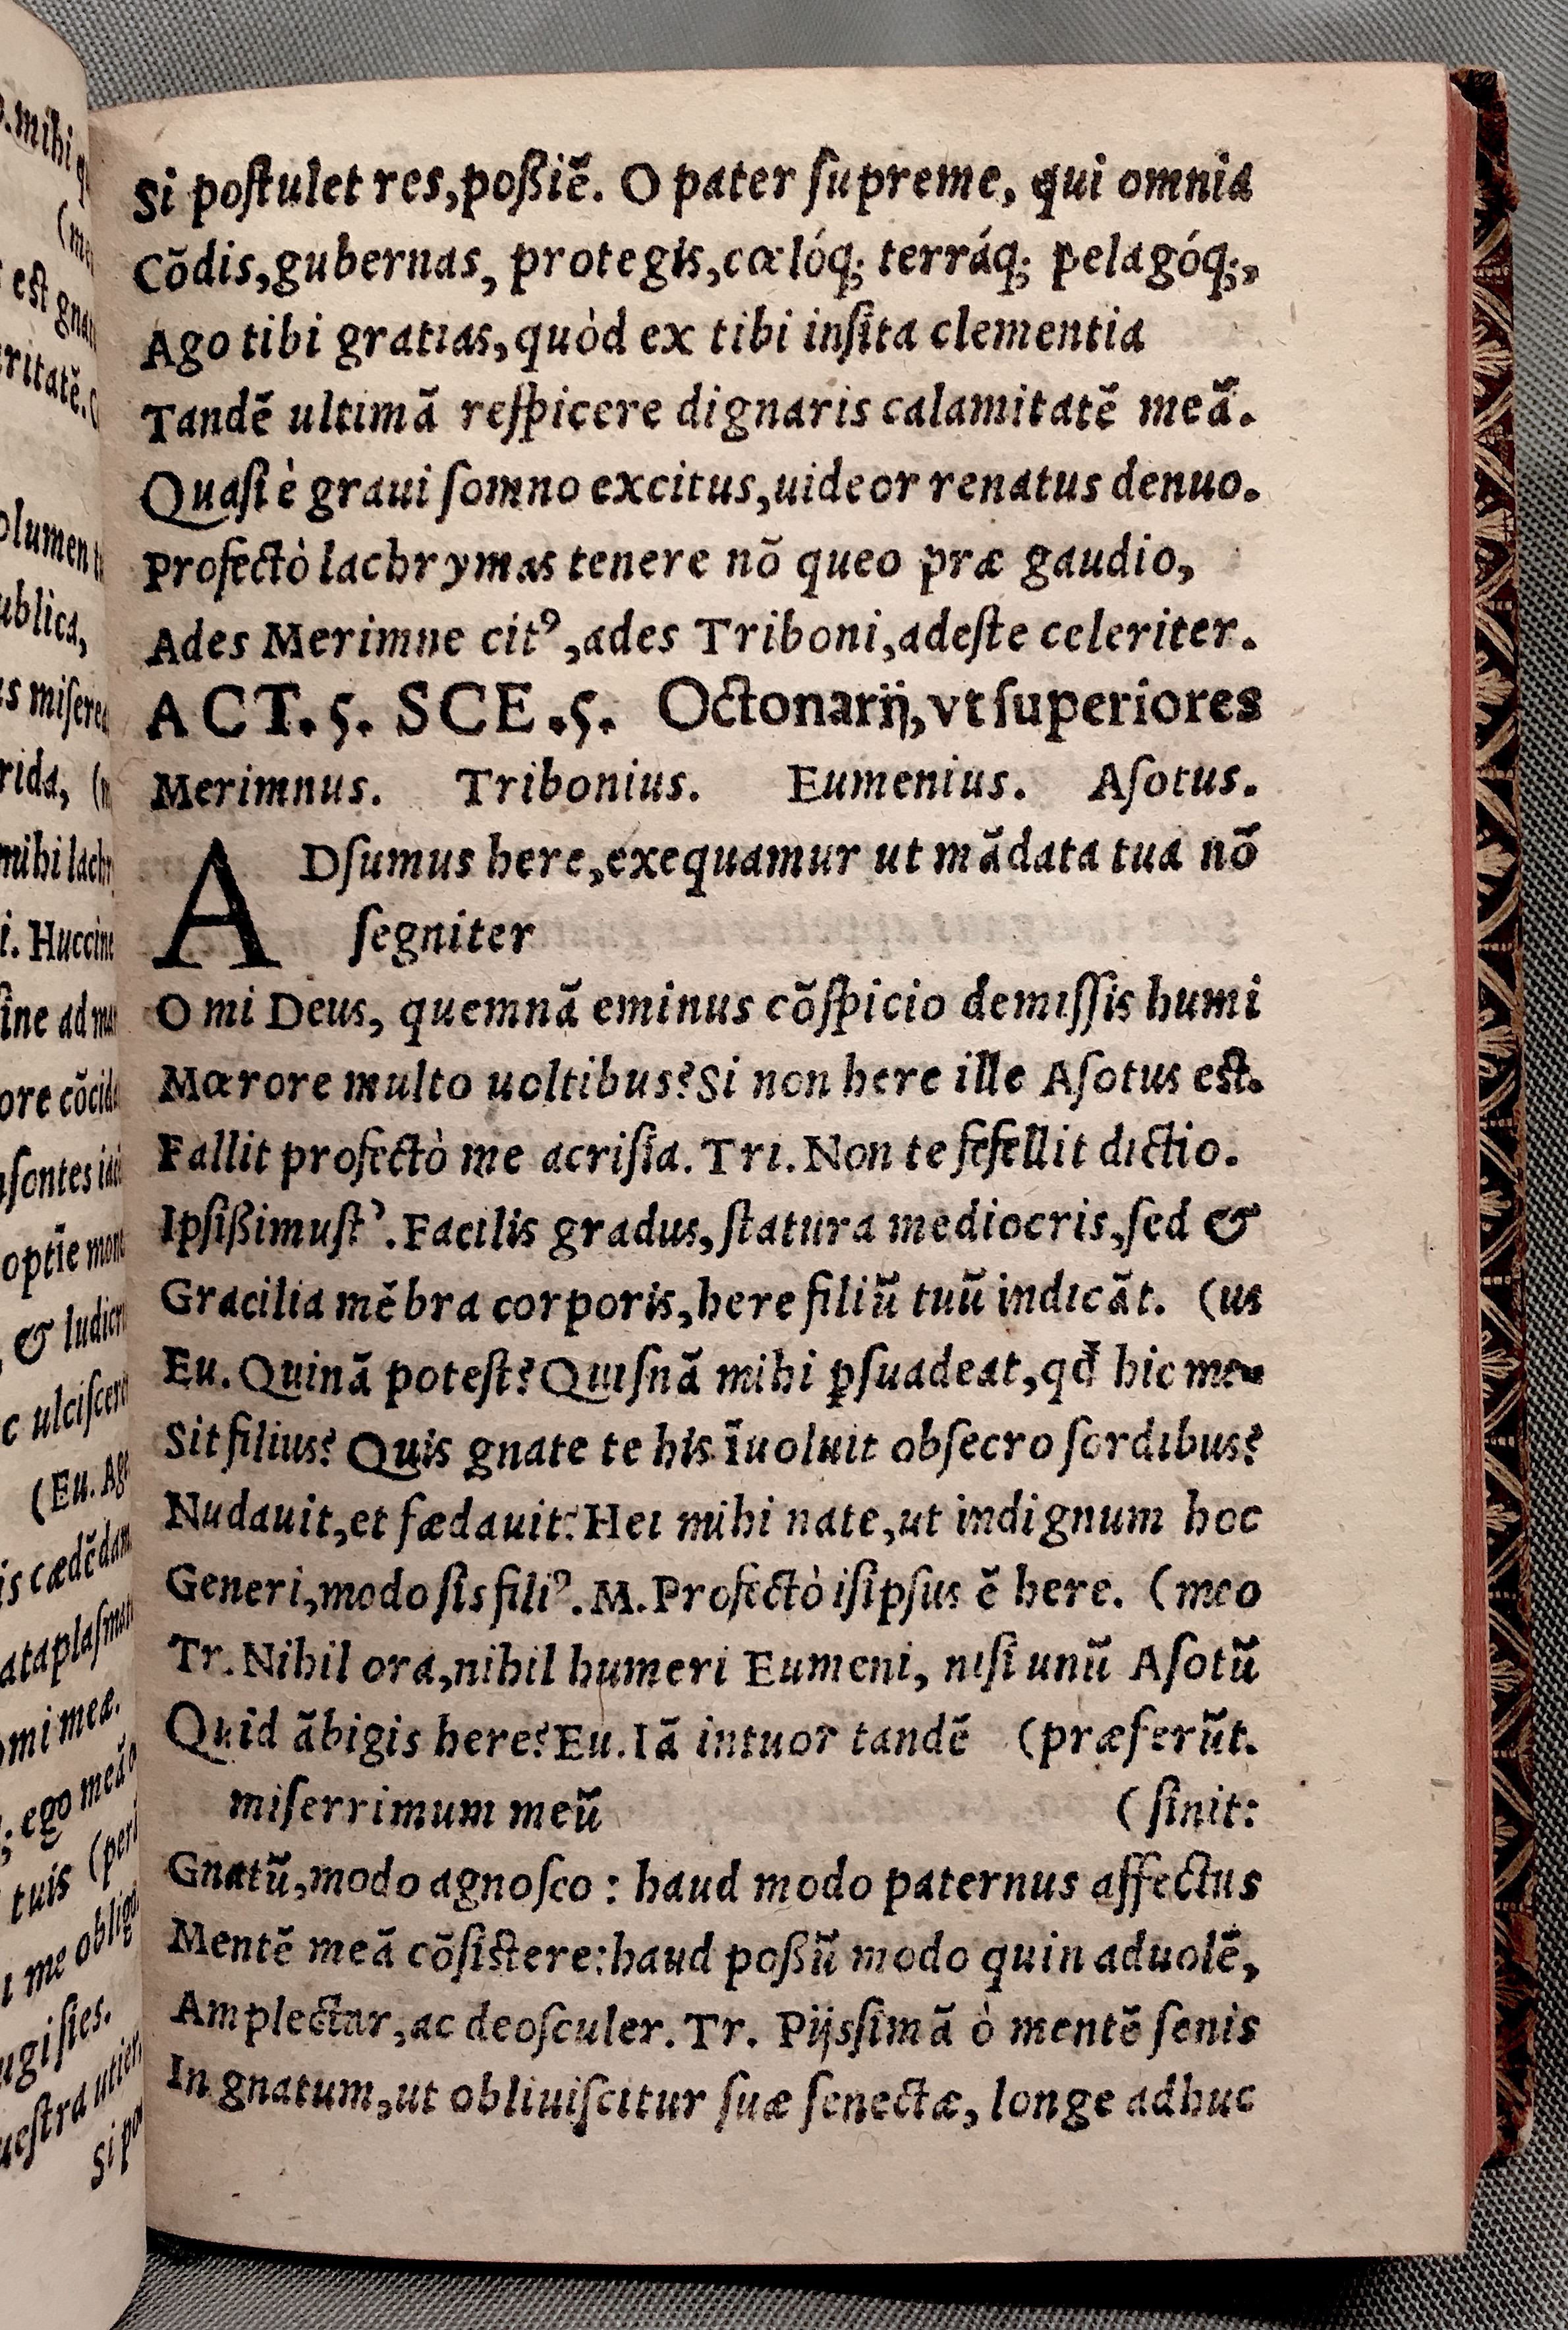 Si poſtulet res,poßiē. O pater ſupreme, qui omnia
Cōdis,gubernas, protegis,cœlóq; terráq; pelagóq;,
Ago tibi gratias,quòd ex tibi inſita clementia
Tandē ultimā reſpicere dignaris calamitatē meā.
Quaſi è graui ſomno excitus,uideor renatus denuo.
Profectò lachrymas tenere nō queo præ gaudio,
Ades Merimne citꝰ,ades Triboni,adeſte celeriter.
ACT.5. SCE.5. Octonarĳ,vt ſuperiores
Merimnus. Tribonius. Eumenius. Aſotus.
ADſumus here,exequamur ut mādata tua nō
ſegniter
O mi Deus, quemnā eminus cōſpicio demiſſis humi
Mœrore multo uoltibus? Si non here ille Aſotus eſt.
Fallit profectò me acriſia. Tri. Non te fefellit dictio.
Ipſißimuſt'. Facilis gradus, ſtatura mediocris,ſed &
Gracilia mēbra corporis,here filiū tuū indicāt. (us
Eu. Quinā poteſt? Quiſnā mihi ꝑſuadeat,qđ hic me-
Sit filius? Quis gnate te his īuoluit obſecro ſordibus?
Nudauit,et fædauit? Hei mihi nate,ut indignum hoc
Generi,modo ſis filiꝰ. M. Profectò iſipſus ē here. (meo
Tr. Nihil ora,nihil humeri Eumeni, niſi unū Aſotū
Quid ābigis here? Eu. Iā intuor tandē (præferūt.
miſerrimum meū (ſinit:
Gnatū,modo agnoſco : haud modo paternus affectus
Mentē meā cōſiſtere:haud poßū modo quin aduolē,
Amplectar,ac deoſculer. Tr. Pĳsſimā ò mentē ſenis
In gnatum,ut obliuiſcitur ſuæ ſenectæ, longe adhuc